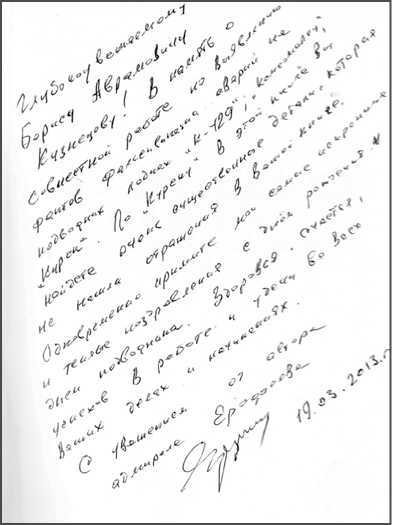 Глубокоуважаемому
Борису Аврамовичу
Кузнецову! В память о
совместной работе по выявлению
фактов фальсификации аварий на
подводных лодках "К-129", "Комсомолец",
"Курск". По "Курску" в этой книге Вы
найдете очень существенные детали, которая
не нашла отражения в Вашей книге.
Одновременно примите мои самые искренние
и теплые поздравления с днём рождения и
днем подводника. Здоровья, счастья,
успехов в работе и удачи во всех
Ваших делах и начинаниях.
С уважением от автора
адмирала
19.03.2013.г